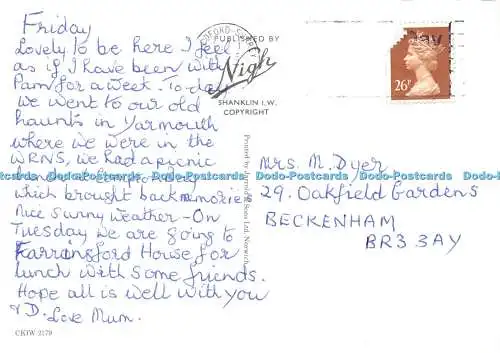 Friday
Lovely to be here I feel
as if I have been with
Pam for a week. To-day
we went to our old
haunts in Yarmouth
where we were in the
WRNS, we had a picnic
lunch at
which brought back memories
Nice sunny weather - On
Tuesday we are going to
Farringford House for
lunch with some friends.
Hope all is well with you
& D. Love Mum.
CKIW 2179
PUBLISHED BY
Nigh
SHANKLIN I.W.
COPYRIGHT
Printed by Jarrold & Sons Ltd, Norwich
26P
Mrs. M. Dyer
29. Oakfield Gardens
BECKENHAM
BR3 3AY
Dodo-Postcards Dodo-Postcards Dodo-Postcards Dodo-Postcards